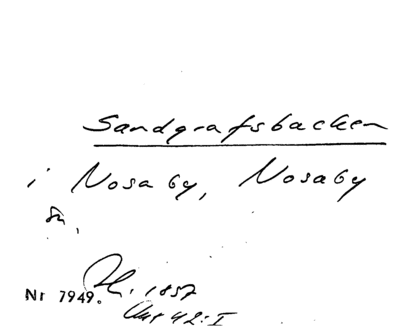 Sandgrafsbacken
i Nosaby, Nosaby
sn.
1857
Nr 7949.
42:I